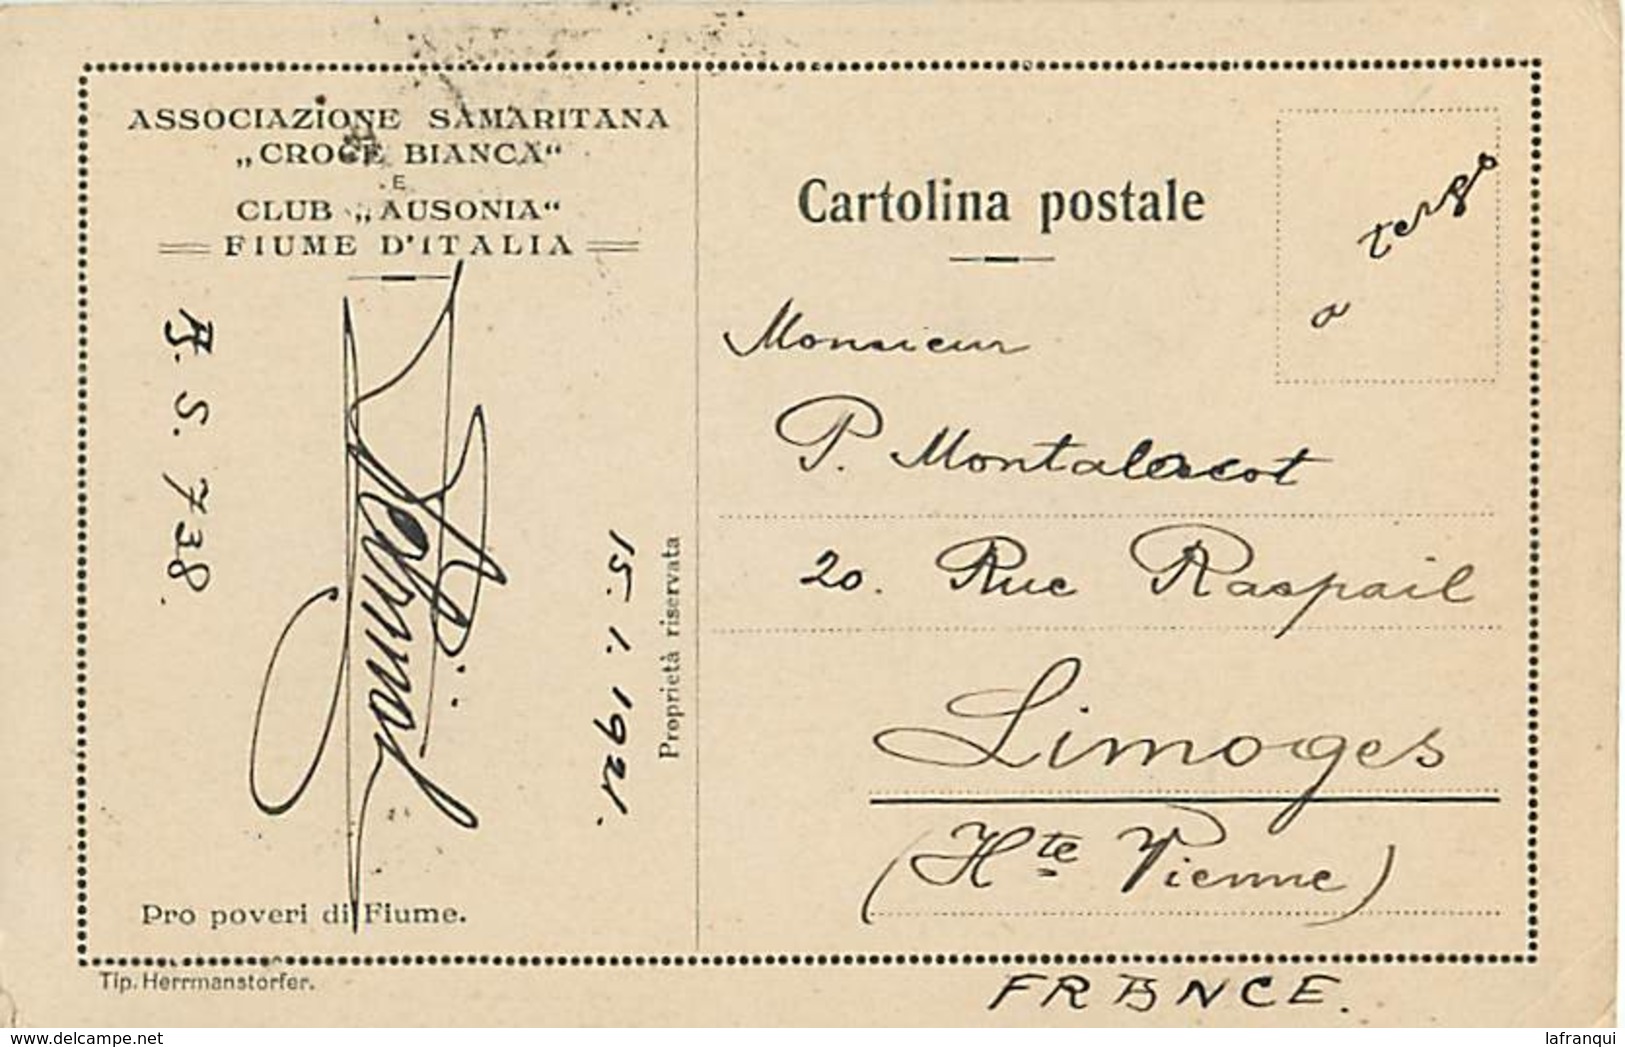 ASSOCIAZIONE SAMARITANA
„CROCE BIANCA“
E
CLUB „AUSONIA“
FIUME D'ITALIA
A. S. 738.
15. 1. 1921.
Proprietà riservata
Pro poveri di Fiume.
Tip. Herrmanstorfer.
Cartolina postale
a tergo
Monsieur
P. Montalescot
20. Rue Raspail
Limoges
(Hte Vienne)
FRANCE.
www.delcampe.net
lafranqui